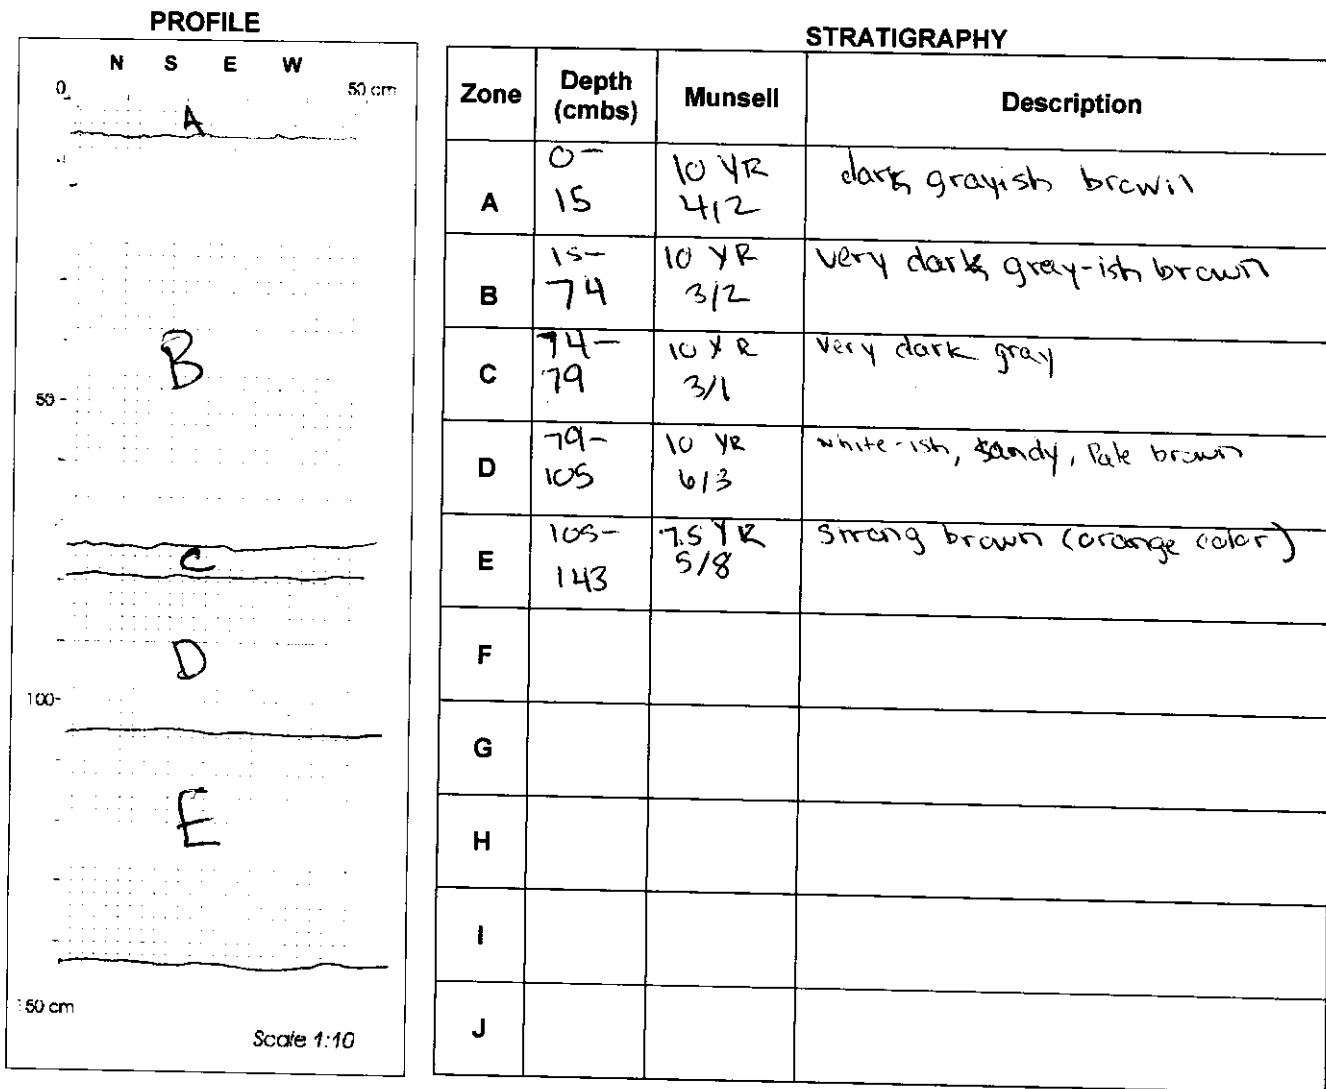 PROFILE
N S E W
0 50 cm
A
B
50
C
D
100
E
150 cm
Scale 1:10
STRATIGRAPHY
Zone Depth (cmbs) Munsell Description
A 0-15 10 YR 4/2 dark grayish brown
B 15-74 10 YR 3/2 very dark gray-ish brown
C 74-79 10 YR 3/1 very dark gray
D 79-105 10 YR 6/3 white-ish, sandy, Pale brown
E 105-143 7.5 YR 5/8 strong brown (orange color)
F
G
H
I
J